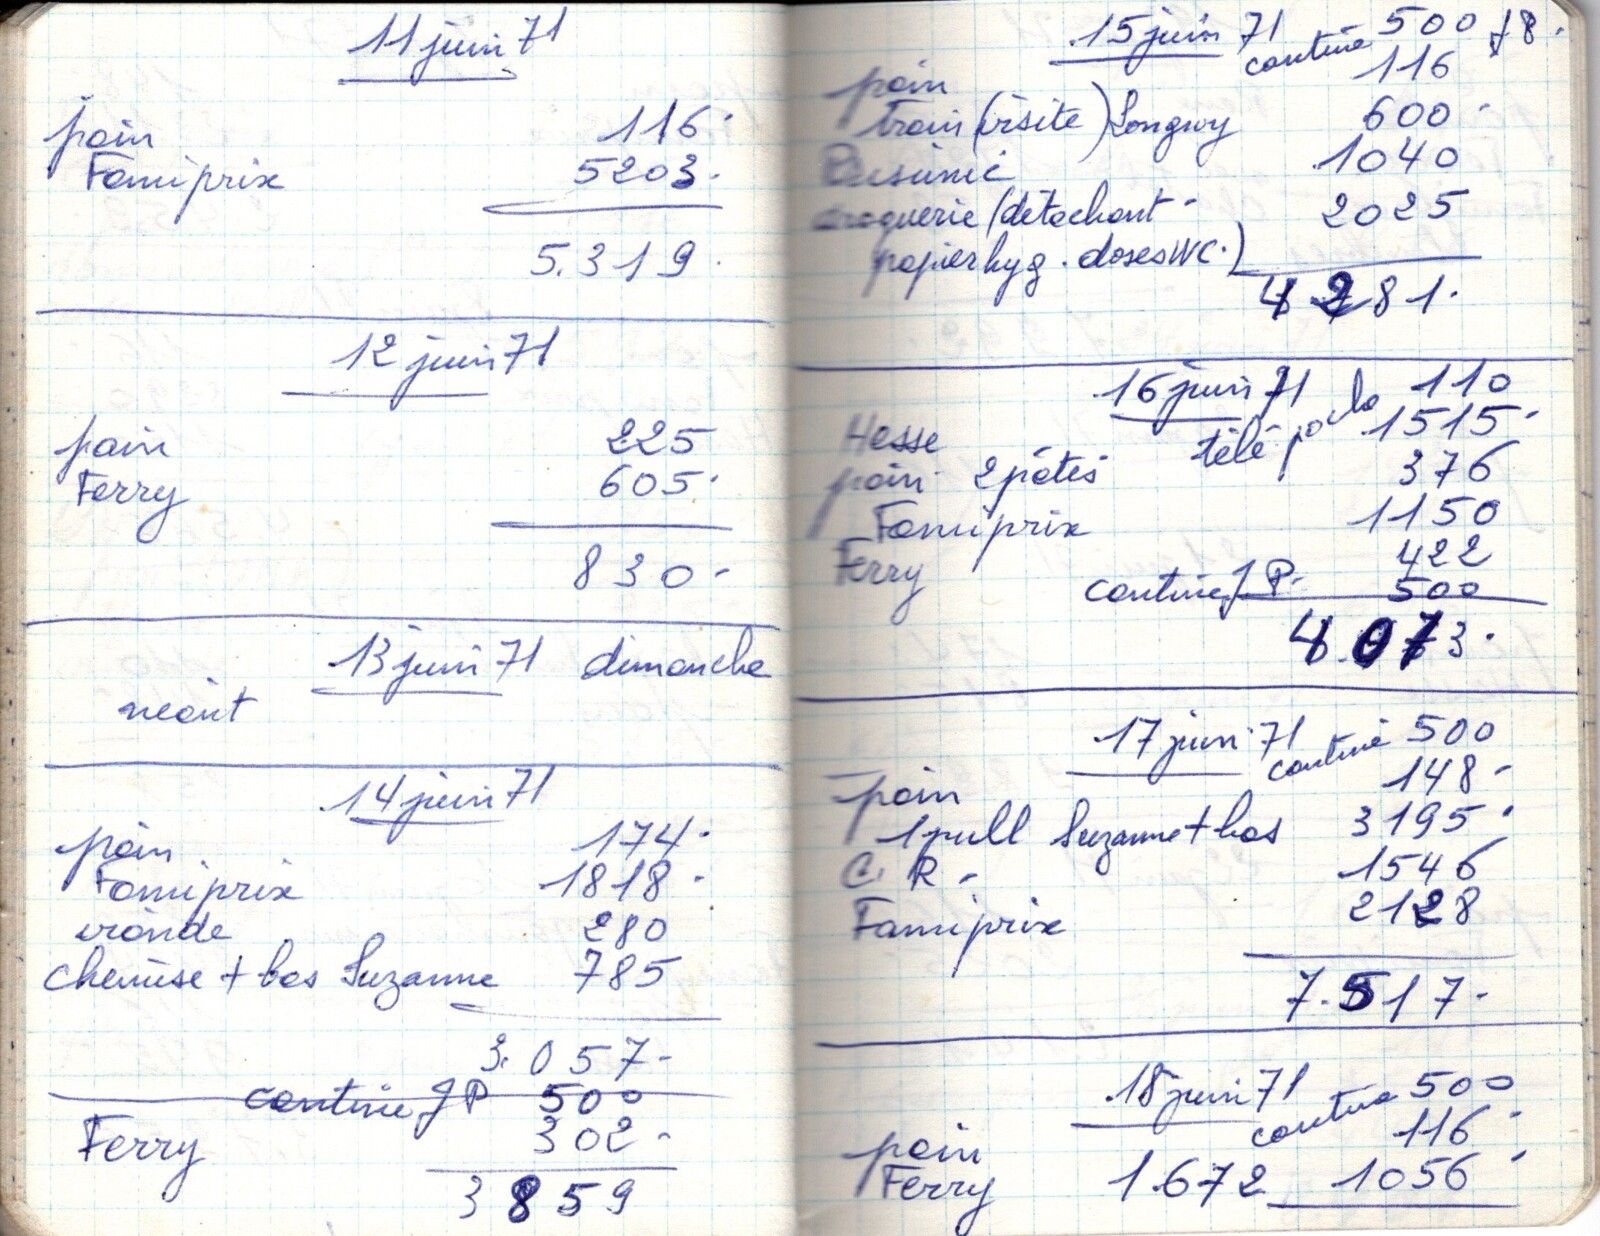 11 juin 71
pain 116.
Famiprix 5203.
5.319.
12 juin 71
pain 225
Ferry 605.
830.
13 juin 71 dimanche
néant
14 juin 71
pain 174.
Famiprix 1818.
viande 280
chemise + bas Suzanne 785
3.057.
cantine JP 500
Ferry 302.
3859
15 juin 71 cantine 500
pain 116
train (visite) Longwy 600
1040
droguerie (détachant - 2025
papier hyg. doses WC.)
4281.
16 juin 71 110
Hesse télé poche 1515.
pain 2 pâtés 376
Famiprix 1150
Ferry 422
cantine JP. 500
4.073.
17 juin 71 cantine 500
pain 148.
1 pull Suzanne + bas 3195.
C. R. 1546
Famiprix 2128
7.517.
18 juin 71 cantine 500
pain 116
Ferry 1.672 1056